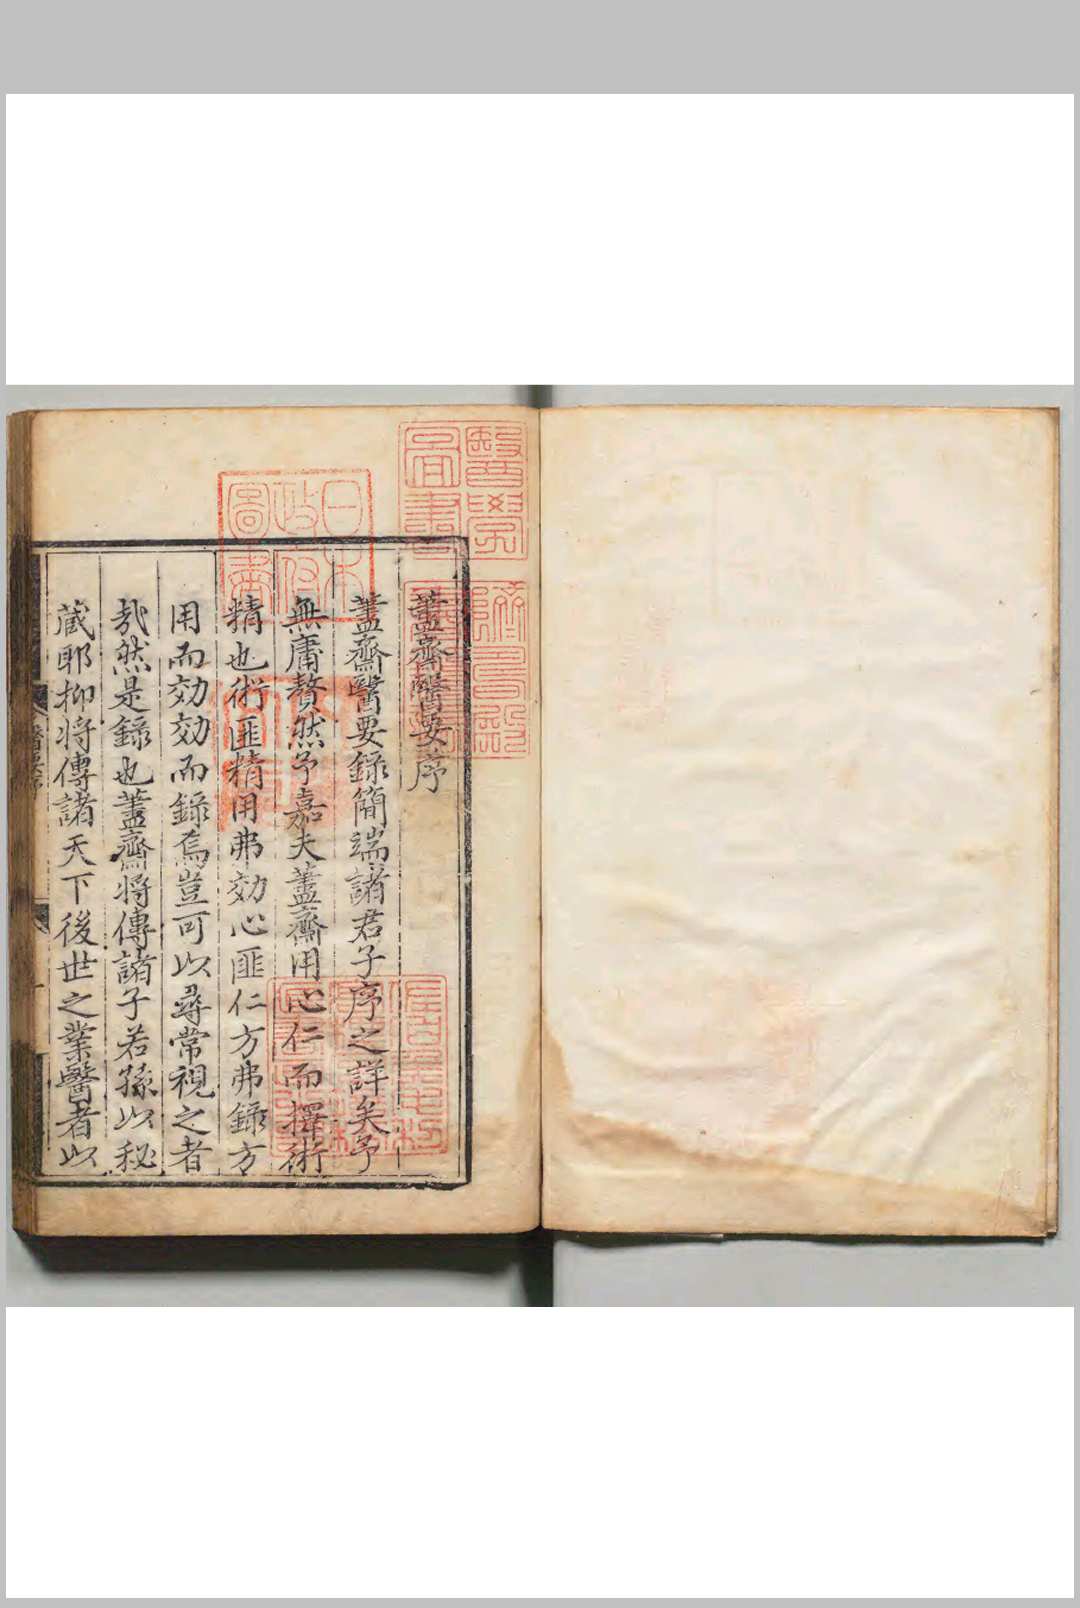 藎齋醫要序
藎齋醫要錄簡端諸君子序之詳矣予
無庸贅然予嘉夫藎齋用心仁而擇術
精也術匪精用弗効心匪仁方弗錄方
用而効効而錄焉豈可以尋常視之者
㢤然是錄也藎齋將傳諸子若孫以秘
藏耶抑将傳諸天下後世之業醫者以
日本
政府
圖書
醫學
圖書